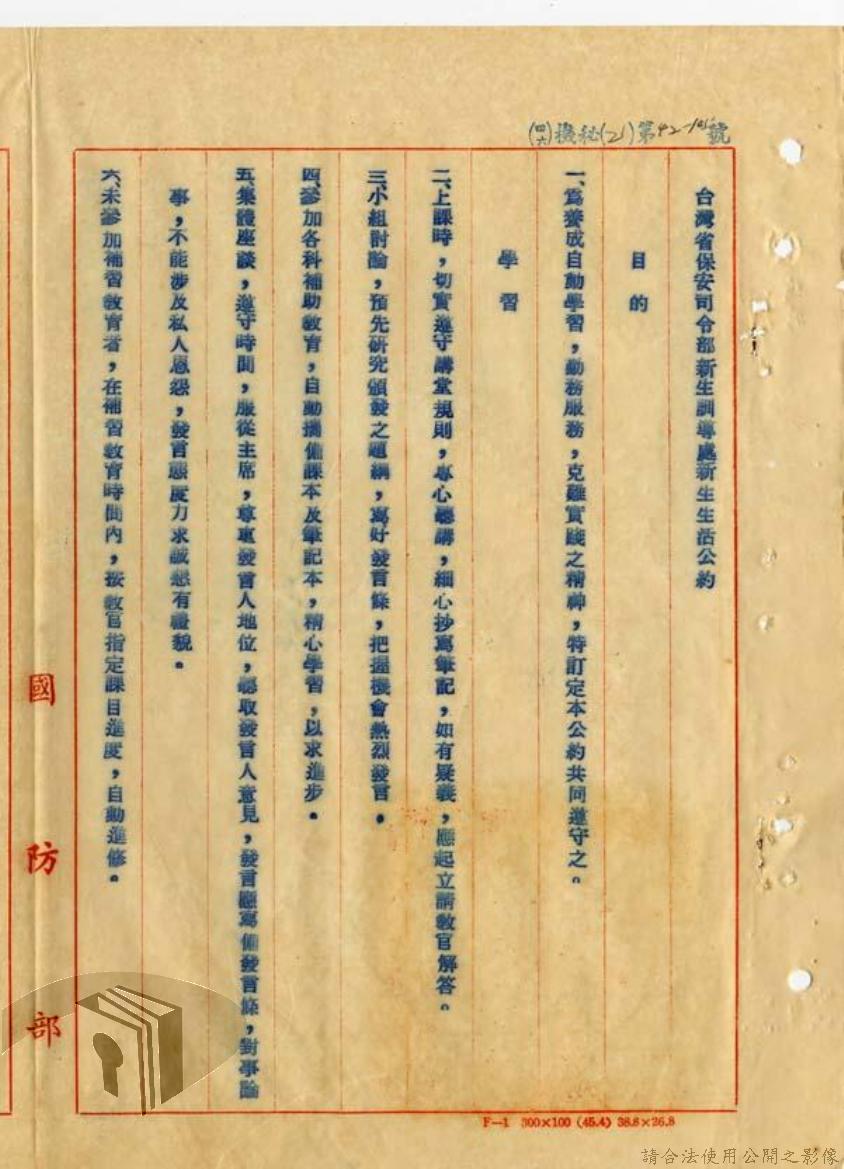 (四六)機秘(乙)第42-10號
台灣省保安司令部新生訓導處新生生活公約
目的
一、爲養成自動學習，勤務服務，克難實踐之精神，特訂定本公約共同遵守之。
學習
二、上課時，切實遵守講堂規則，專心聽講，細心抄寫筆記，如有疑義，應起立請教官解答。
三、小組討論，預先研究頒發之題綱，寫好發言條，把握機會熱烈發言。
四、參加各科補助教育，自動攜備課本及筆記本，精心學習，以求進步。
五、集體座談，遵守時間，服從主席，尊重發言人地位，聽取發言人意見，發言應寫備發言條，對事論
事，不能涉及私人恩怨，發言態度力求誠懇有禮貌。
六、未參加補習教育者，在補習教育時間內，按教官指定課目進度，自動進修。
國防部
F—1 300×100 (45.4) 38.8×26.8
請合法使用公開之影像